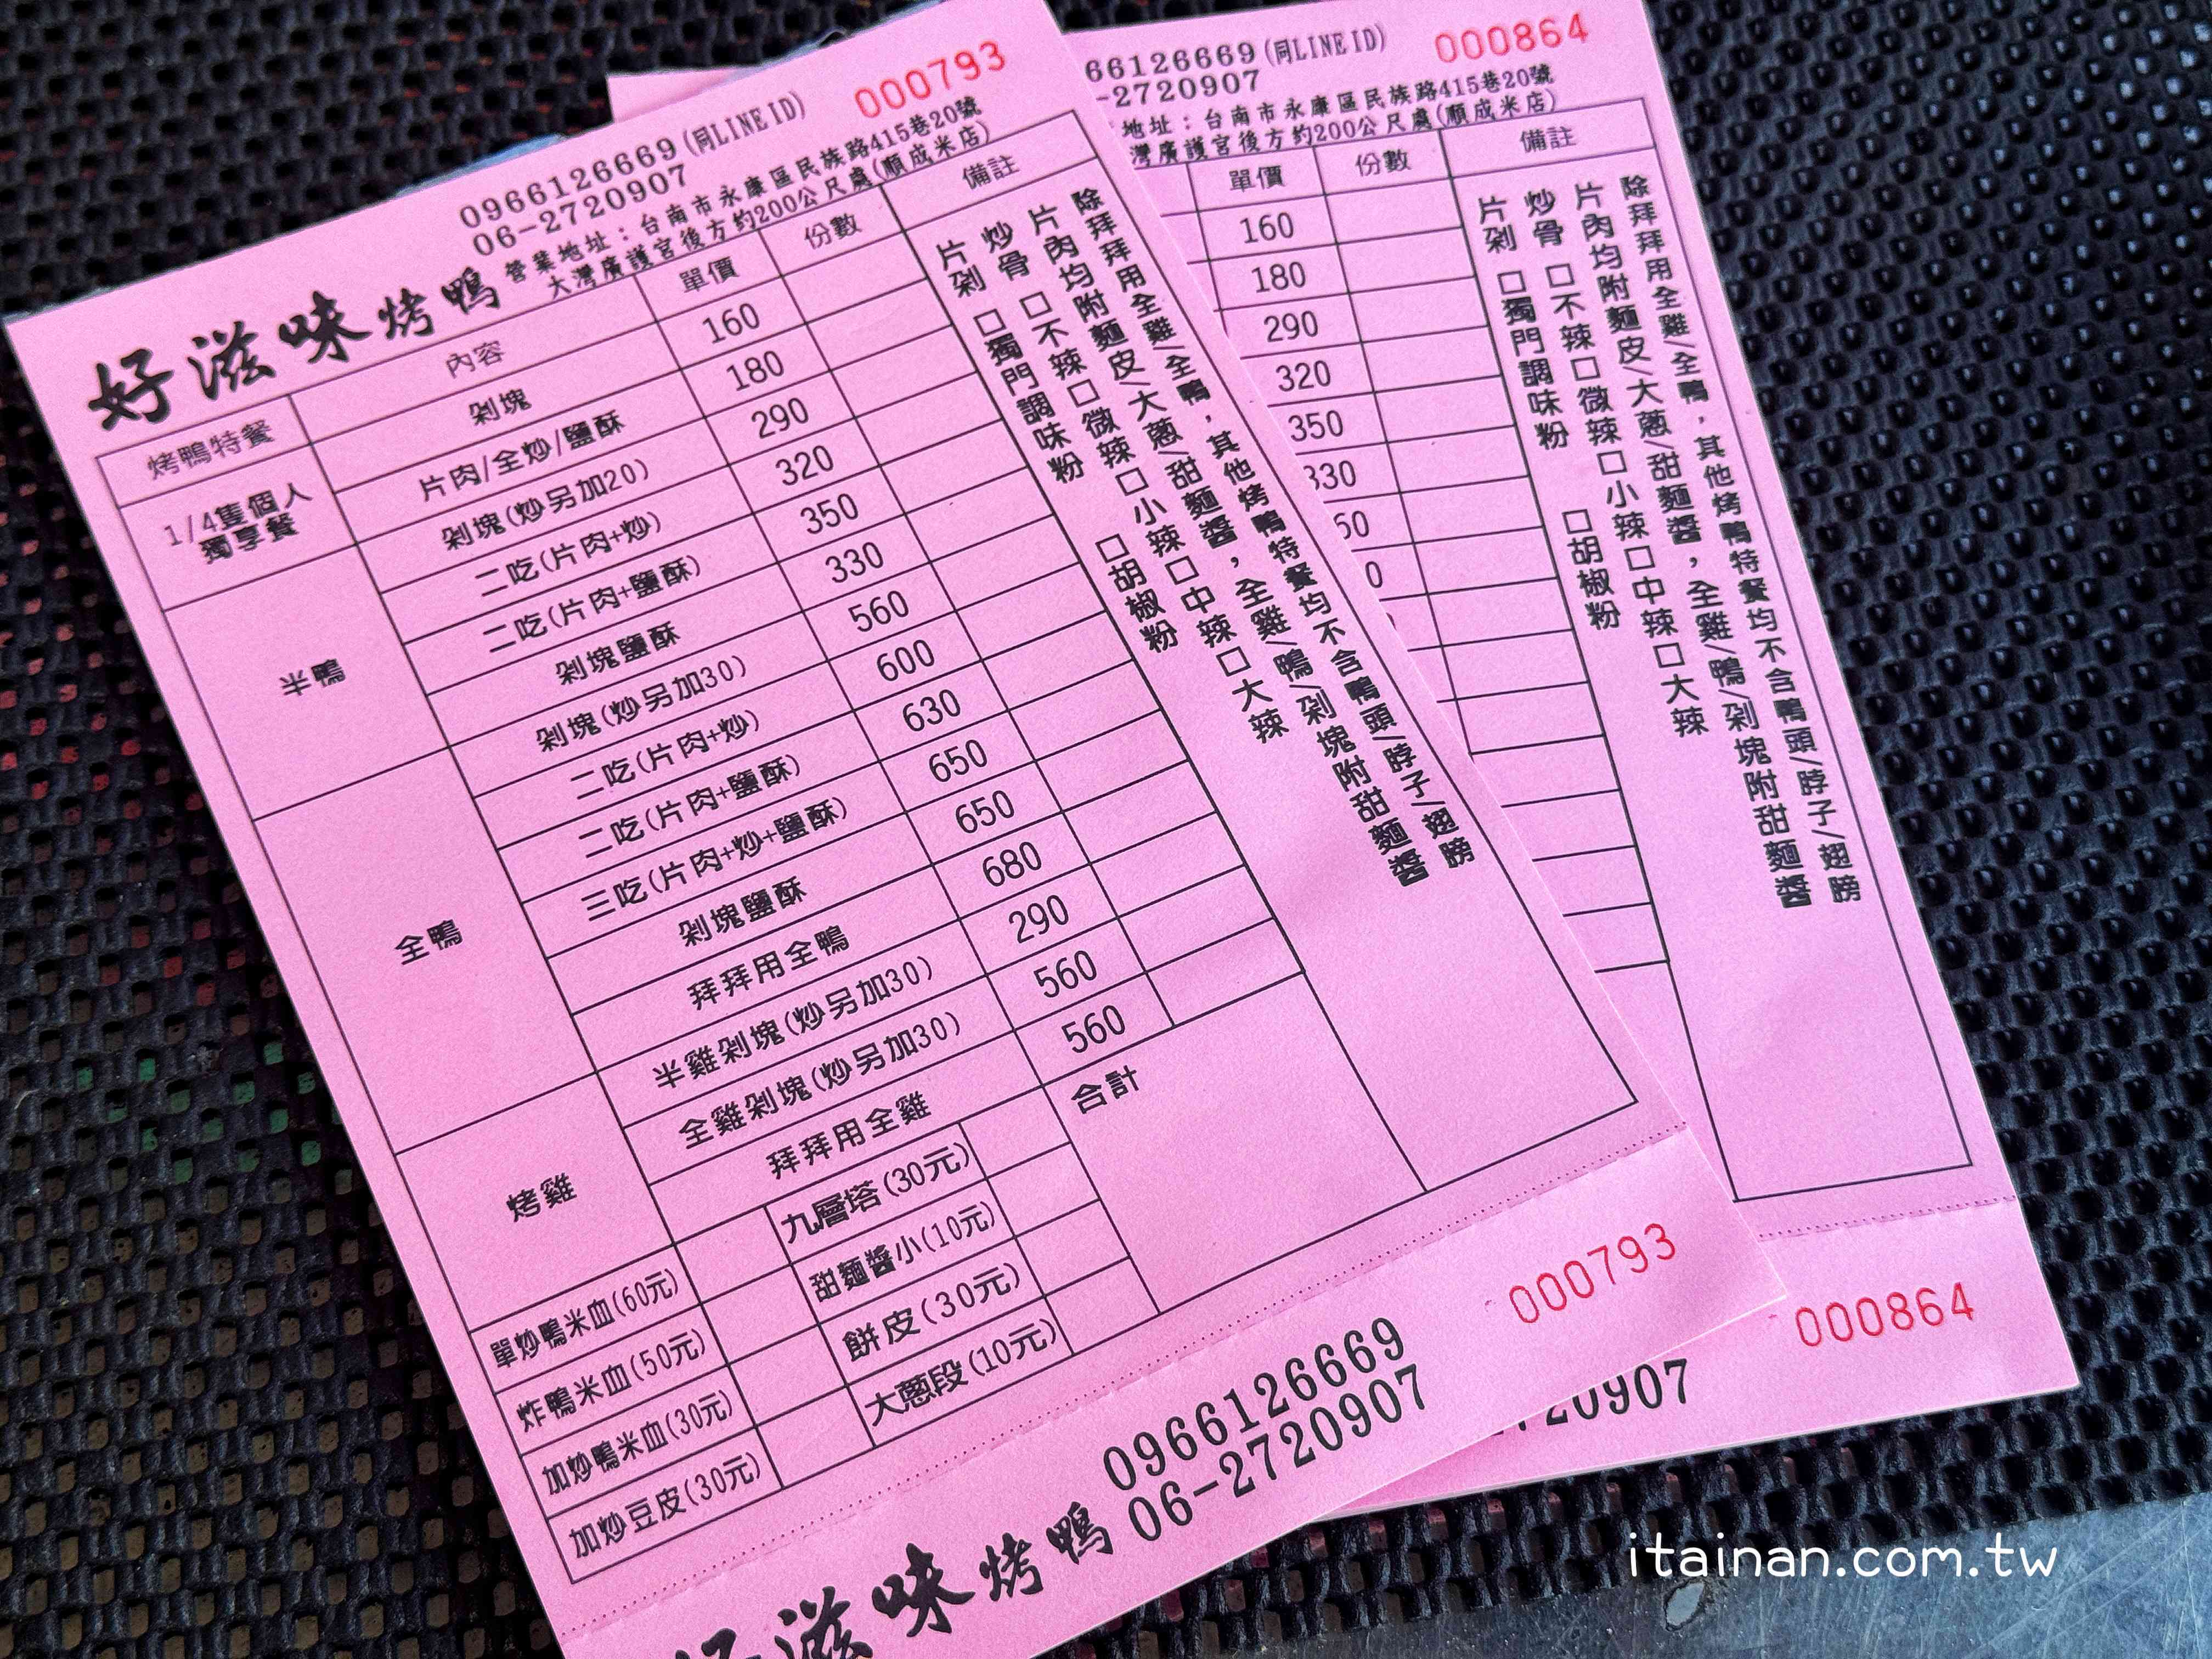 000793
0966126669(同LINE ID)
06-2720907
營業地址：台南市永康區民族路415巷20號
大灣廣護宮後方約200公尺處(順成米店)
好滋味烤鴨
烤鴨特餐 內容 單價 份數 備註
1/4隻個人獨享餐
剁塊 160
片肉/全炒/鹽酥 180
半鴨
剁塊(炒另加20) 290
二吃(片肉+炒) 320
二吃(片肉+鹽酥) 350
剁塊鹽酥 330
全鴨
剁塊(炒另加30) 560
二吃(片肉+炒) 600
二吃(片肉+鹽酥) 630
三吃(片肉+炒+鹽酥) 650
剁塊鹽酥 650
拜拜用全鴨 680
烤雞
半雞剁塊(炒另加30) 290
全雞剁塊(炒另加30) 560
拜拜用全雞 560
除拜拜用全雞/全鴨，其他烤鴨特餐均不含鴨頭/脖子/翅膀
片肉均附麵皮/大蔥/甜麵醬，全雞/鴨/剁塊附甜麵醬
炒骨 □不辣□微辣□小辣□中辣□大辣
片剁 □獨門調味粉 □胡椒粉
單炒鴨米血(60元) 九層塔(30元) 合計
炸鴨米血(50元) 甜麵醬小(10元)
加炒鴨米血(30元) 餅皮(30元)
加炒豆皮(30元) 大蔥段(10元)
000793
0966126669
06-2720907
好滋味烤鴨
000864
66126669(同LINE ID)
-2720907
地址：台南市永康區民族路415巷20號
灣廣護宮後方約200公尺處(順成米店)
單價 份數 備註
160
180
290
320
350
330
60
0
除拜拜用全雞/全鴨，其他烤鴨特餐均不含鴨頭/脖子/翅膀
片肉均附麵皮/大蔥/甜麵醬，全雞/鴨/剁塊附甜麵醬
炒骨 □不辣□微辣□小辣□中辣□大辣
片剁 □獨門調味粉 □胡椒粉
000864
720907
itainan.com.tw